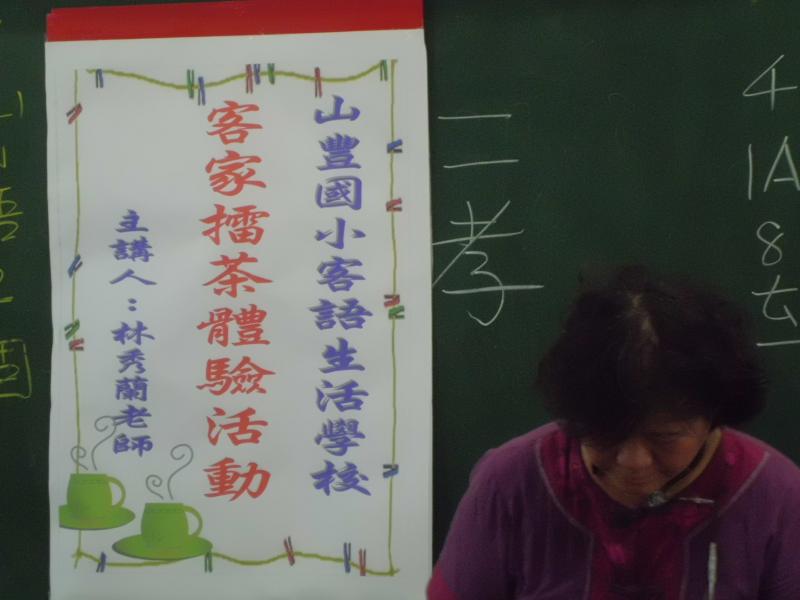 山豐國小客語生活學校
客家擂茶體驗活動
主講人：林秀蘭老師
二孝
4
1A
8